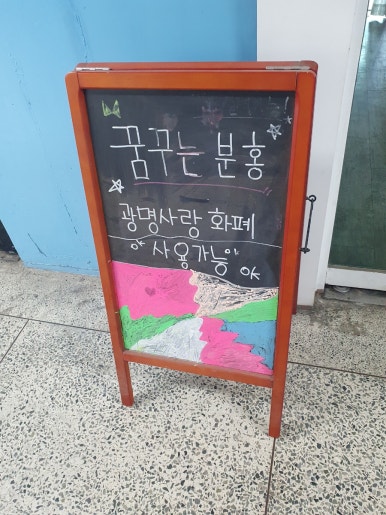 꿈꾸는 분홍
광명사랑 화폐
사용가능